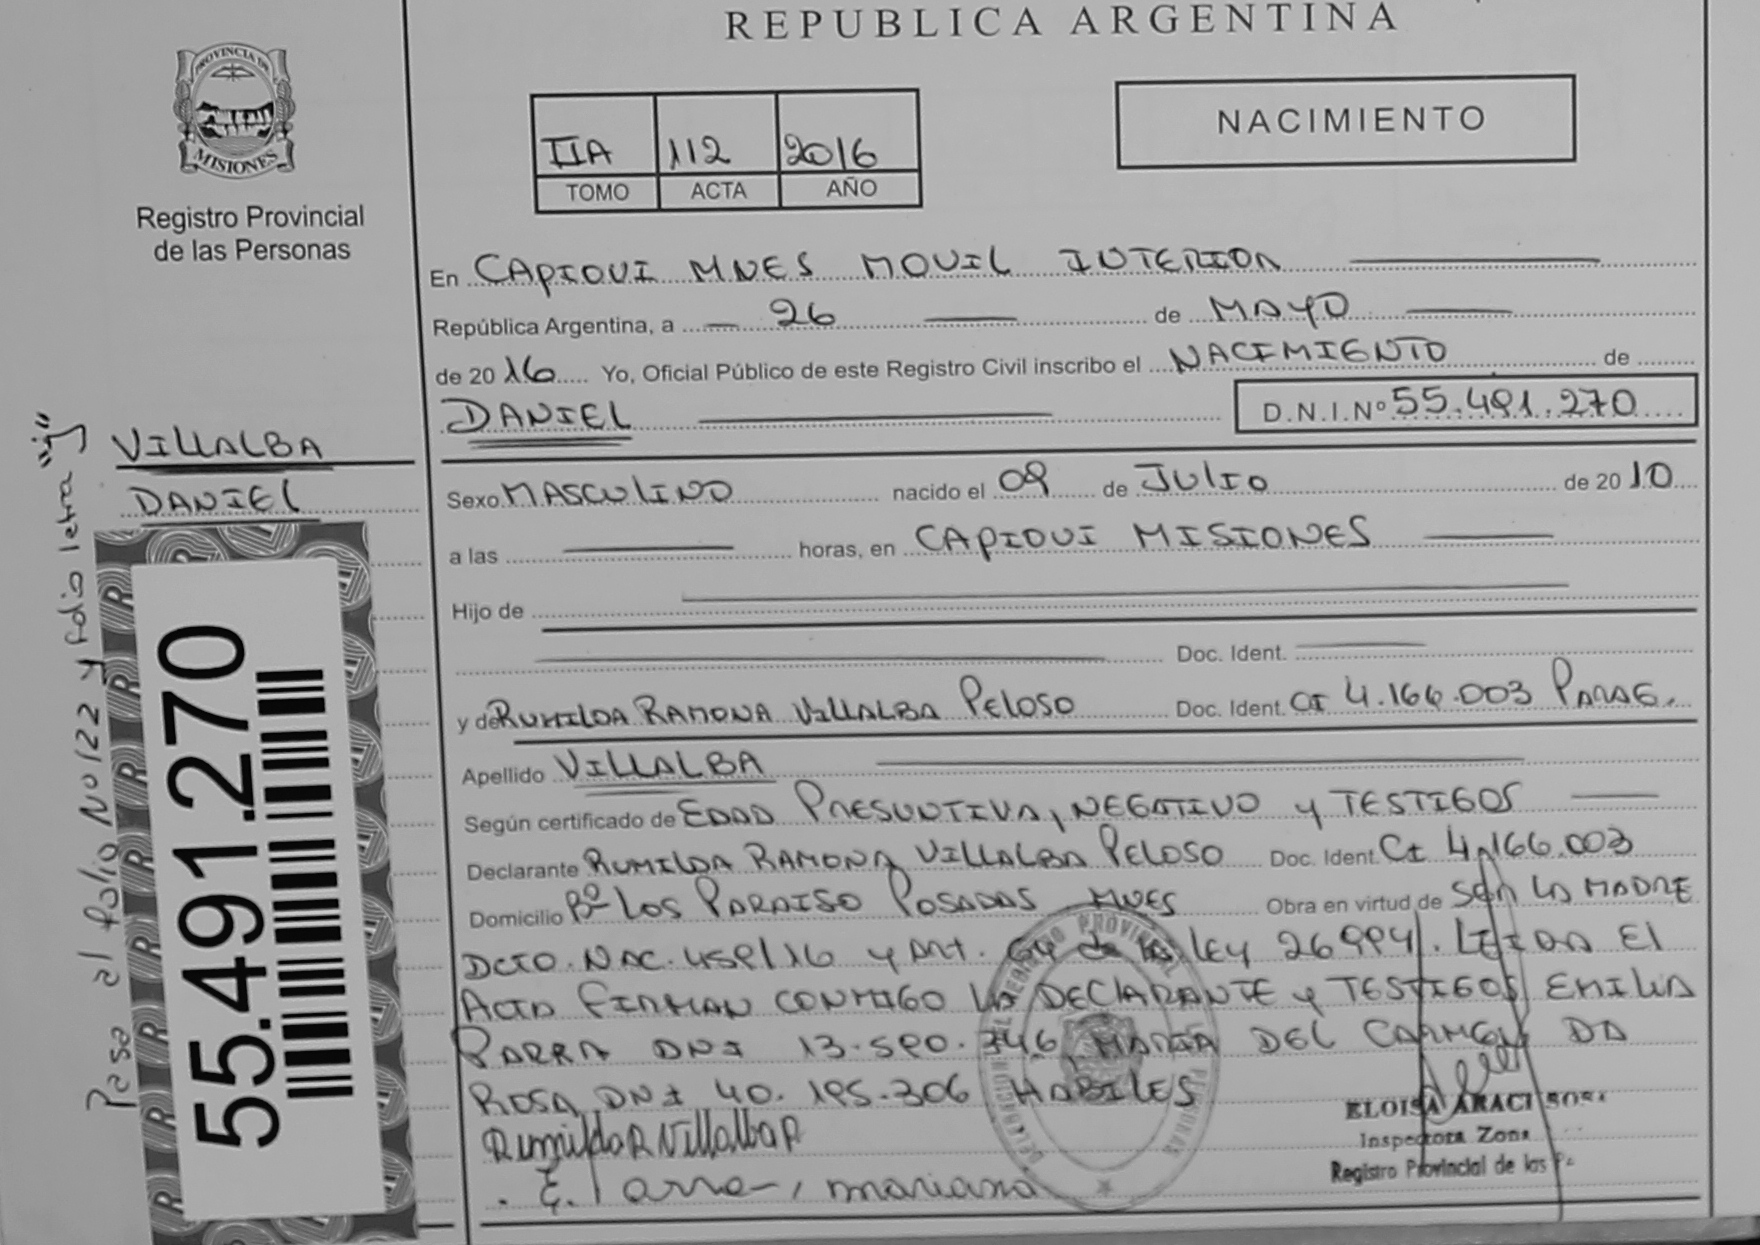 REPUBLICA ARGENTINA
PROVINCIA DE
MISIONES
Registro Provincial
de las Personas
IIA 112 2016
TOMO ACTA AÑO
NACIMIENTO
En CAPIOVI MNES MOVIL INTERIOR
República Argentina, a 26 de MAYO
de 2016 Yo, Oficial Público de este Registro Civil inscribo el NACIMIENTO de
DANIEL D.N.I.Nº 55.491.270
VILLALBA
DANIEL
Paso al folio Nº 122 y folio letra "j"
55.491.270
Sexo MASCULINO nacido el 09 de JULIO de 2010
a las horas, en CAPIOVI MISIONES
Hijo de
Doc. Ident.
y de RUMILDA RAMONA VILLALBA PELOSO Doc. Ident. CI 4.166.003 PARAG.
Apellido VILLALBA
Según certificado de EDAD PRESUNTIVA, NEGATIVO y TESTIGOS
Declarante RUMILDA RAMONA VILLALBA PELOSO Doc. Ident. CI 4.166.003
Domicilio Bº LOS PARAISO POSADAS MNES Obra en virtud de SER LA MADRE
DCTO. NAC. 459/16 y ART. 64 de la LEY 26994. LEIDA El
ACTA FIRMAN CONMIGO LA DECLARANTE y TESTIGOS EMILIA
PARRA DNI 346 MARIA DEL CARMEN DA
ROSA DNI 40.195.306 HABILES
Rumilda R Villalba P
mariana
ELOISA ARACI SOSA
Inspectora Zona
Registro Provincial de las Pe